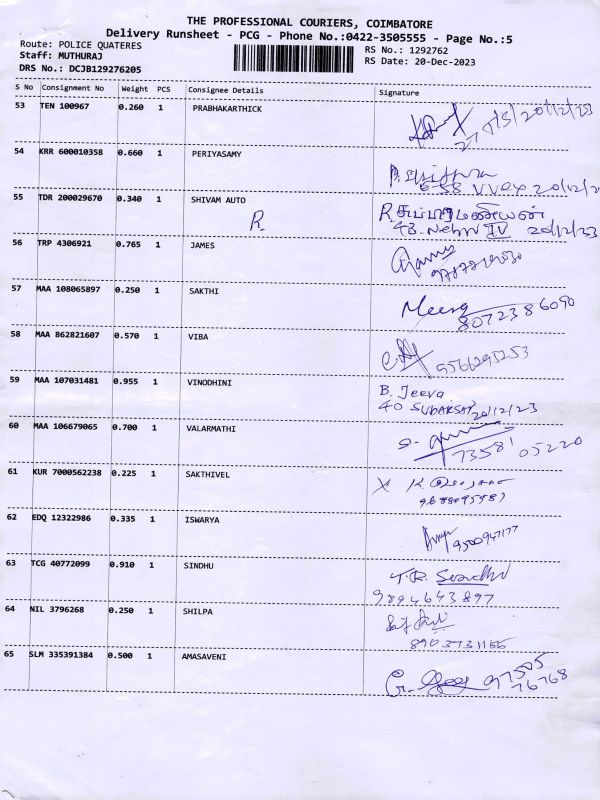 THE PROFESSIONAL COURIERS, COIMBATORE
Delivery Runsheet - PCG - Phone No.:0422-3505555 - Page No.:5
Route: POLICE QUATERES
RS No.: 1292762
Staff: MUTHURAJ
RS Date: 20-Dec-2023
DRS No.: DCJB129276205
S No Consignment No Weight PCS Consignee Details Signature
53 TEN 100967 0.260 1 PRABHAKARTHICK
20/12/23
54 KRR 600010358 0.660 1 PERIYASAMY
55 TDR 200029670 0.340 1 SHIVAM AUTO
R.
R. சுப்பிரமணியன்
43. Nehru IV 20/12/23
56 TRP 4306921 0.765 1 JAMES
57 MAA 108065897 0.250 1 SAKTHI
Meera
8072386090
58 MAA 862821607 0.570 1 VIBA
9566295253
59 MAA 107031481 0.955 1 VINODHINI
B. Jeeva
40 20/12/23
60 MAA 106679065 0.700 1 VALARMATHI
73581 05220
61 KUR 7000562238 0.225 1 SAKTHIVEL
X K.
62 EDQ 12322986 0.335 1 ISWARYA
9500947177
63 TCG 40772099 0.910 1 SINDHU
T.R. Sindhu
9894643897
64 NIL 3796268 0.250 1 SHILPA
8903731166
65 SLM 335391384 0.500 1 AMASAVENI
97505
76768